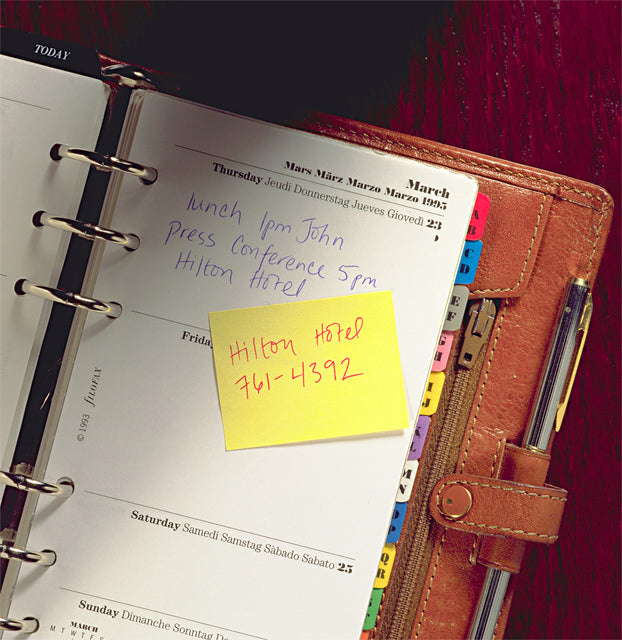 TODAY
March
Mars März Marzo Marzo 1995
Thursday Jeudi Donnerstag Jueves Giovedì 23
lunch 1pm John
press Conference 5pm
Hilton Hotel
Hilton Hotel
761-4392
© 1993 FILOFAX
Saturday Samedi Samstag Sàbado Sabato 25
Sunday Dimanche Sonntag
MARCH
M T W T F S
A B
C D
E F
G H
I J
K L
M N
O P
Q R